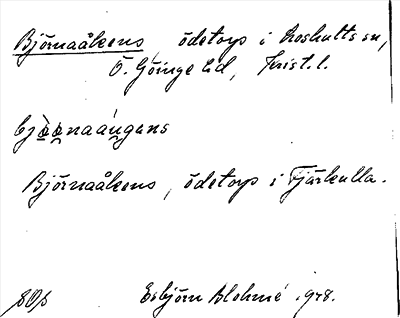 Björnaåkens, ödetorp i Loshults sn,
Ö. Göinge hd, Krist. l.
bjö̲ö̲naåu̲gens
Björnaåkens, ödetorp i Fjärkulla.
Esbjörn Blohmé 1928.